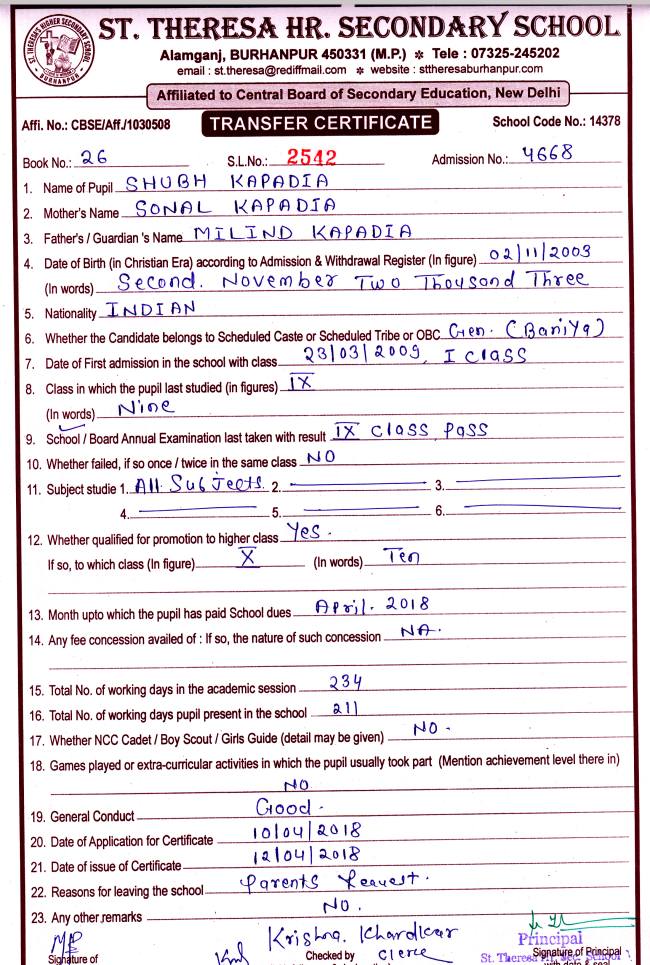 ST. THERESA'S HIGHER SECONDARY SCHOOL
BURHANPUR
ST. THERESA HR. SECONDARY SCHOOL
Alamganj, BURHANPUR 450331 (M.P.) * Tele : 07325-245202
email : st.theresa@rediffmail.com * website : sttheresaburhanpur.com
Affiliated to Central Board of Secondary Education, New Delhi
Affi. No.: CBSE/Aff./1030508 TRANSFER CERTIFICATE School Code No.: 14378
Book No.: 26 S.L.No.: 2542 Admission No.: 4668
1. Name of Pupil SHUBH KAPADIA
2. Mother's Name SONAL KAPADIA
3. Father's / Guardian 's Name MILIND KAPADIA
4. Date of Birth (in Christian Era) according to Admission & Withdrawal Register (In figure) 02/11/2003
(In words) Second. November Two Thousand Three
5. Nationality INDIAN
6. Whether the Candidate belongs to Scheduled Caste or Scheduled Tribe or OBC Gen. (Baniya)
7. Date of First admission in the school with class 23/03/2009, I class
8. Class in which the pupil last studied (in figures) IX
(In words) Nine
9. School / Board Annual Examination last taken with result IX Class Pass
10. Whether failed, if so once / twice in the same class NO
11. Subject studie 1. All Subjects 2. 3.
4. 5. 6.
12. Whether qualified for promotion to higher class Yes.
If so, to which class (In figure) X (In words) Ten
13. Month upto which the pupil has paid School dues April. 2018
14. Any fee concession availed of : If so, the nature of such concession NA.
15. Total No. of working days in the academic session 234
16. Total No. of working days pupil present in the school 211
17. Whether NCC Cadet / Boy Scout / Girls Guide (detail may be given) NO.
18. Games played or extra-curricular activities in which the pupil usually took part (Mention achievement level there in)
NO
19. General Conduct Good.
20. Date of Application for Certificate 10/04/2018
21. Date of issue of Certificate 12/04/2018
22. Reasons for leaving the school Parents Request.
23. Any other remarks NO.
Krishna. Khardkar
Principal
Signature of Checked by Clerk Signature of Principal
St. Theresa Hr. Sec. School
with date & seal